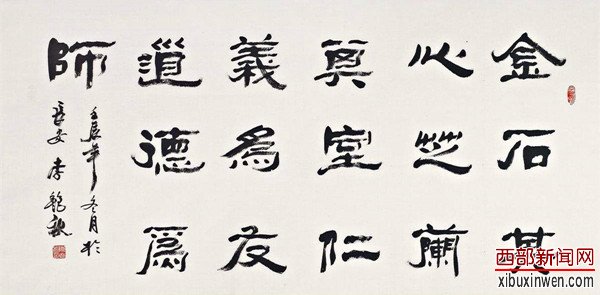 金石其
心芝蘭
其室仁
義為友
道德爲
師
壬辰年冬月於
長安李
西部新闻网
xibuxinwen.com